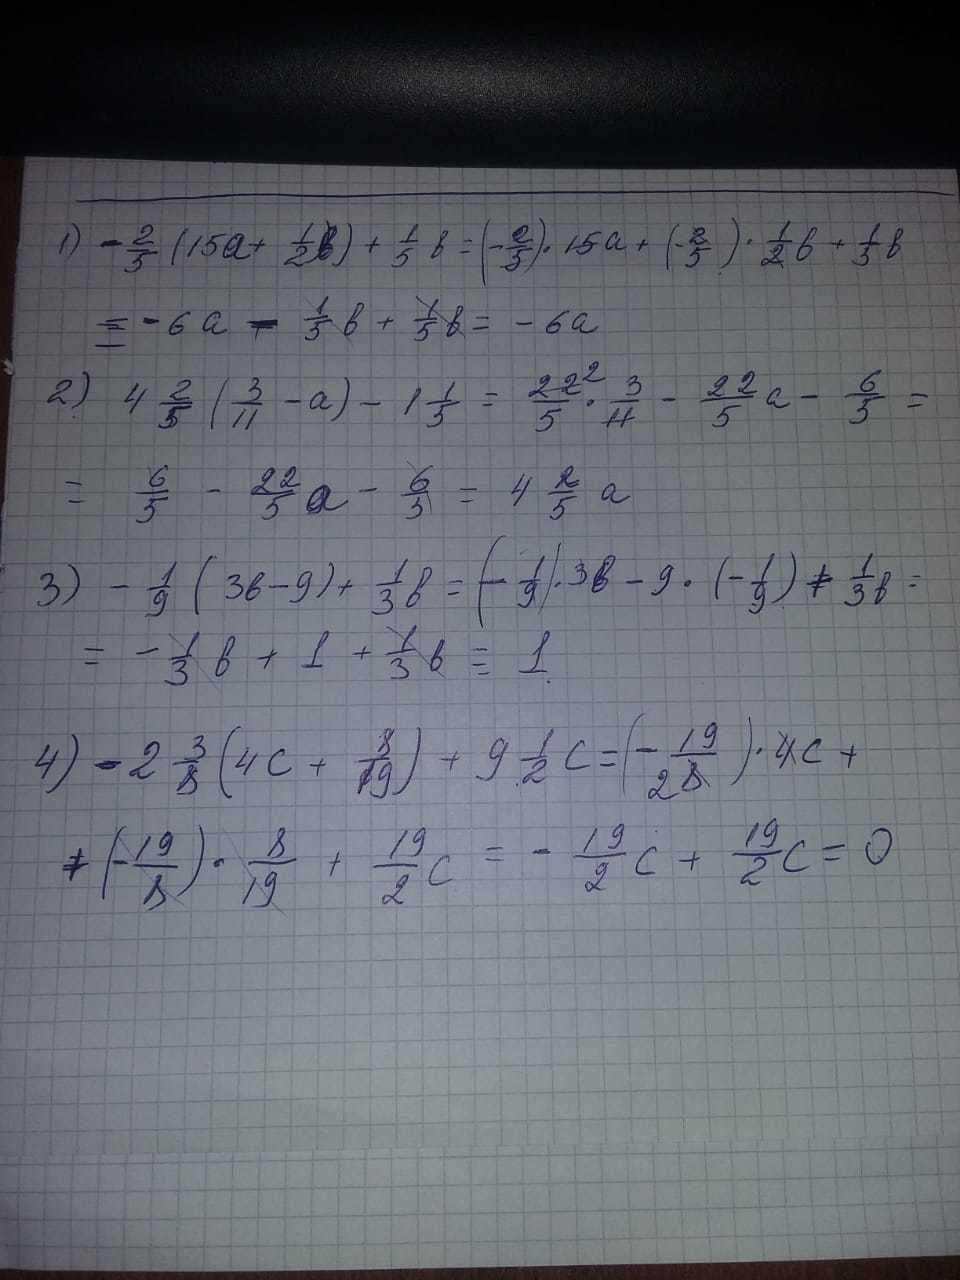 1) -2/5 (15a + 1/2 в) + 1/5 в = (-2/5) · 15a + (-2/5) · 1/2 в + 1/5 в
= -6a - 1/5 в + 1/5 в = -6a
2) 4 2/5 (3/11 - a) - 1 1/5 = 22²/5 · 3/11 - 22/5 a - 6/5 =
= 6/5 - 22/5 a - 6/5 = 4 2/5 a
3) -1/9 (3в - 9) + 1/3 в = (-1/9) · 3в - 9 · (-1/9) + 1/3 в =
= -1/3 в + 1 + 1/3 в = 1.
4) -2 3/8 (4c + 8/19) + 9 1/2 c = (-19/2 8) · 4c +
+ (-19/8) · 8/19 + 19/2 c = -19/2 c + 19/2 c = 0